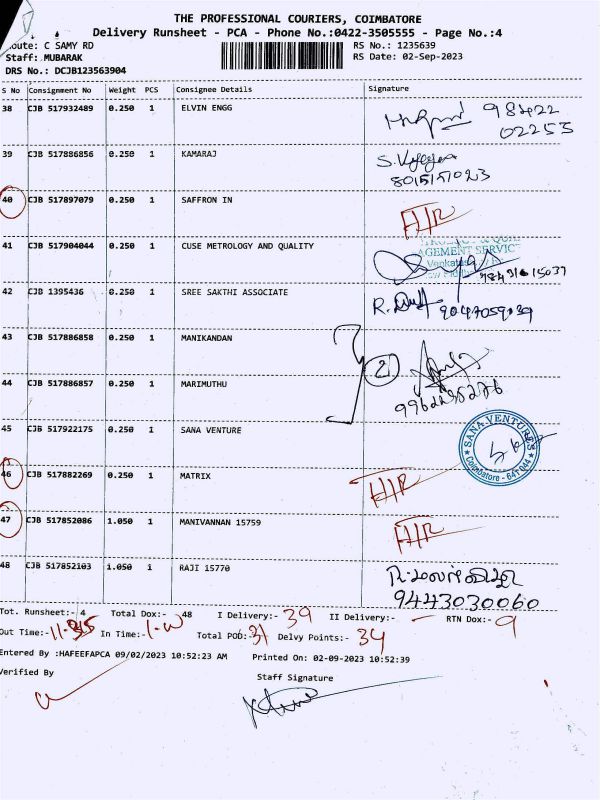 THE PROFESSIONAL COURIERS, COIMBATORE
Delivery Runsheet - PCA - Phone No.:0422-3505555 - Page No.:4
Route: C SAMY RD RS No.: 1235639
Staff: MUBARAK RS Date: 02-Sep-2023
DRS No.: DCJB123563904
S No Consignment No Weight PCS Consignee Details Signature
38 CJB 517932489 0.250 1 ELVIN ENGG 98422
02255
39 CJB 517886856 0.250 1 KAMARAJ
40 CJB 517897079 0.250 1 SAFFRON IN
41 CJB 517904044 0.250 1 CUSE METROLOGY AND QUALITY
AGEMENT SERVIC
42 CJB 1395436 0.250 1 SREE SAKTHI ASSOCIATE 9047059039
43 CJB 517886858 0.250 1 MANIKANDAN
2
44 CJB 517886857 0.250 1 MARIMUTHU
45 CJB 517922175 0.250 1 SANA VENTURE SANA VENTURES Coimbatore - 641 044
46 CJB 517882269 0.250 1 MATRIX
47 CJB 517852086 1.050 1 MANIVANNAN 15759
48 CJB 517852103 1.050 1 RAJI 15770
9443030060
Tot. Runsheet:- 4 Total Dox:- 48 I Delivery:- 39 II Delivery:- - RTN Dox:- 9
Out Time:- In Time:- Total POD:- 31 Delvy Points:- 34
Entered By :HAFEEFAPCA 09/02/2023 10:52:23 AM Printed On: 02-09-2023 10:52:39
Verified By Staff Signature